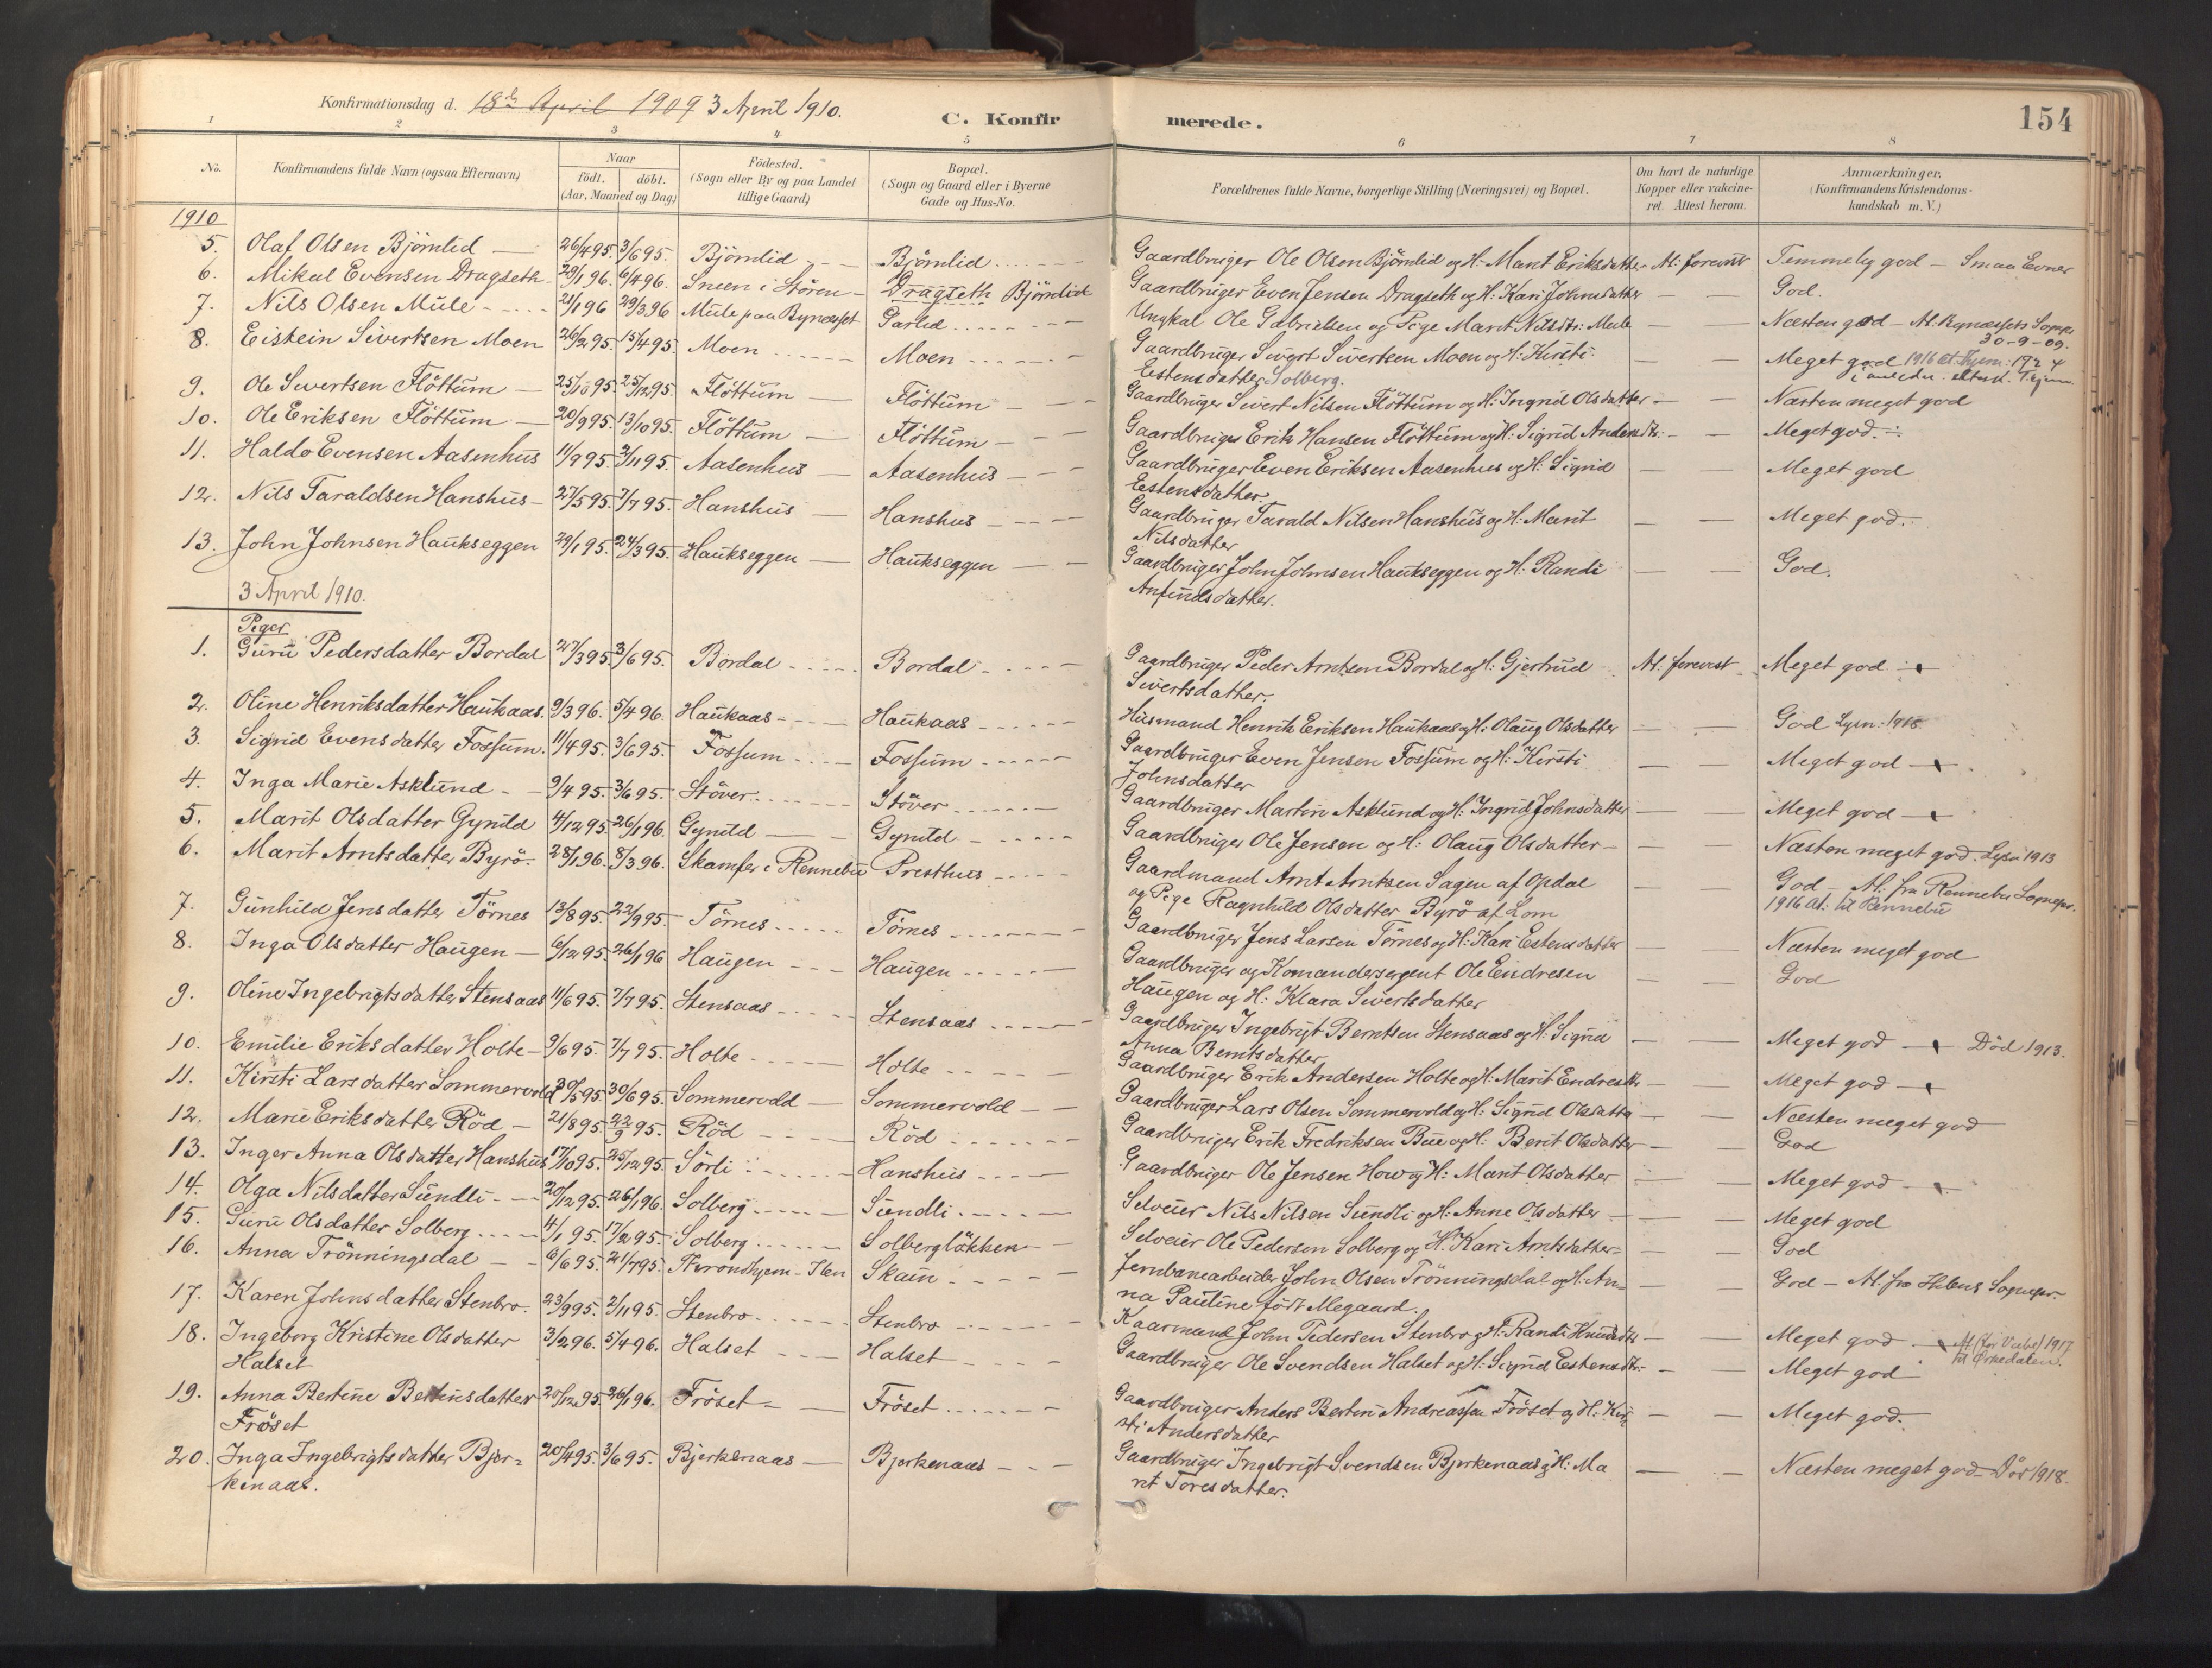 Konfirmationsdag d. 18de April 1909 3 April 1910.
C. Konfirmerede.
154
1 2 3 4 5 6 7 8
No.
Konfirmandens fulde Navn (ogsaa Efternavn)
Naar
født. døbt.
(Aar, Maaned og Dag)
Födested.
(Sogn eller By og paa Landet
tillige Gaard)
Bopæl.
(Sogn og Gaard eller i Byerne
Gade og Hus-No.
Forældrenes fulde Navne, borgerlige Stilling (Næringsvei) og Bopæl.
Om havt de naturlige
Kopper eller vakcine-
ret. Attest herom.
Anmærkninger.
(Konfirmandens Kristendoms-
kundskab m. V.)
1910
5. Olaf Olsen Bjömlid — 26/4 95. 3/6 95. Bjömlid Bjömlid Gaardbruger Ole Olsen Bjömlid og H. Marit Eriksdatter At. forevist Temmelig god – Smaa Evner
6. Mikal Evensen Dragseth 29/1 96. 6/4 96. Sneen i Stören Dragseth Bjömlid Gaardbruger Even Jensen Dragseth og H: Kari Johnsdatter — — God.
7. Nils Olsen Mule 21/1 96 29/3 96 Mule paa Bynæsset Garlid Ungkal Ole Gabrielsen og Pige Marit Nilsdtr: Mule — — Næsten god – At. Bynæssets Sognepr.
30-9-09.
8. Eistein Sivertsen Moen 26/2 95. 15/4 95. Moen Moen Gaardbruger Sivert Sivertsen Moen og H: Kirsti
Estensdatter Solberg. — — Meget god 1916
9. Ole Sivertsen Flöttum — 25/10 95 25/12 95. Flöttum Flöttum Gaardbruger Sivert Nilsen Flöttum og H: Ingrid Olsdatter — — Næsten meget god
10. Ole Eriksen Flöttum — 20/9 95 13/10 95. Flöttum Flöttum Gaardbruger Erik Hansen Flöttum og H: Sigrid Andersdtr: — — Meget god.
11. Haldo Evensen Aasenhus 11/9 95 3/11 95. Aasenhus Aasenhus Gaardbruger Even Eriksen Aasenhus og H: Sigrid
Estensdatter. — — Meget god
12. Nils Taraldsen Hanshus 27/5 95. 7/7 95. Hanshus Hanshus Gaardbruger Tarald Nilsen Hanshus og H: Marit
Nilsdatter — — Meget god.
13. John Johnsen Haukseggen 29/1 95. 24/3 95. Haukseggen Haukseggen Gaardbruger John Johnsen Haukseggen og H: Randi
Anfindsdatter. — — God.
3 April 1910.
Piger
1. Guru Pedersdatter Bordal 27/3 95 3/6 95. Bordal Bordal Gaardbruger Peder Arntsen Bordal og H: Gjertrud
Sivertsdatter. At. forevist Meget god
2. Oline Henriksdatter Haukaas. 9/3 96. 5/4 96. Haukaas Haukaas Husmand Henrik Eriksen Haukaas og H: Olaug Olsdatter — — God Lysn: 1918.
3. Sigrid Evensdatter Fossum. 11/4 95. 3/6 95. Fossum Fossum Gaardbruger Even Jensen Fossum og H: Kirsti
Johnsdatter — — Meget god
4. Inga Marie Asklund 9/4 95. 3/6 95. Stöver Stöver Gaardbruger Martin Asklund og H: Ingrid Johnsdatter — — Meget god
5. Marit Olsdatter Gynild 4/12 95 26/1 96. Gynild Gynild Gaardbruger Ole Jensen og H: Olaug Olsdatter — — Næsten meget god. Lysn 1913
6. Marit Arntsdatter Byrö 28/1 96. 8/3 96. Skamfer i Rennebu Presthus Gaardmand Arnt Arntsen Sagen af Opdal
og Pige Ragnhild Olsdatter Byrö af Lom — — God – At: fra Rennebu Sognepr.
1916 At. til Rennebu
7. Gunhild Jensdatter Törnes 13/8 95. 22/9 95. Törnes Törnes Gaardbruger Jens Larsen Törnes og H: Kari Estensdatter — — Næsten meget god
8. Inga Olsdatter Haugen 6/12 95. 26/1 96 Haugen Haugen Gaardbruger og Komandersergent Ole Endresen
Haugen og H: Klara Sivertsdatter — — God
9. Oline Ingebrigtsdatter Stensaas 11/6 95. 7/7 95. Stensaas Stensaas Gaardbruger Ingebrigt Berntsen Stensaas og H: Sigrid
Anna Berntsdatter — — Meget god Död 1913.
10. Emilie Eriksdatter Holte 9/6 95. 7/7 95. Holte Holte Gaardbruger Erik Andersen Holte og H: Marit Endresdtr — — Meget god
11. Kirsti Larsdatter Sommervold 30/5 95. 30/6 95. Sommervold Sommervold Gaardbruger Lars Olsen Sommervold og H: Sigrid Olsdatter — — Næsten meget god
12. Marie Eriksdatter Röd — 21/8 95. 22/9 95. Röd Röd Gaardbruger Erik Fredriksen Bue og H: Berit Olsdatter — — God
13. Inger Anna Olsdatter Hanshus 17/10 95. 25/12 95. Sörli Hanshus Gaardbruger Ole Jensen How og H: Marit Olsdatter — — Meget god
14. Olga Nilsdatter Sundli 20/12 95. 26/1 96. Solberg Sundli Selveier Nils Nilsen Sundli og H: Anne Olsdatter — — Meget god
15. Guru Olsdatter Solberg 4/1 95. 17/2 95. Solberg Solberglökken Selveier Ole Pedersen Solberg og H. Kari Arntsdatter — — God
16. Anna Trönningsdal 6/6 95. 21/7 95. Trondhjem – Ilen Skain Jernbanearbeider John Olsen Trönningsdal og H: An-
na Pauline født Megaard. — — God – At. fra Ihlens Sognepr.
17. Karen Johnsdatter Stenbro. 23/9 95. 2/11 95. Stenbro Stenbro Kaarmand John Pedersen Stenbro og H: Randi Knudsdtr — — Meget god At. (for Vielse) 1917
til Orkedalen.
18. Ingeborg Kristine Olsdatter
Halset 3/2 96. 5/4 96. Halset Halset Gaardbruger Ole Svendsen Halset og H: Sigrid Estensdtr: — — Meget god
19. Anna Bertine Bertinsdatter
Fröset 20/12 95 26/1 96. Fröset Fröset Gaardbruger Anders Bertin Andreassen Fröset og H: Kir-
sti Andersdatter — — Meget god.
20. Inga Ingebrigtsdatter Bjer-
kenaas. 20/4 95. 3/6 95. Bjerkenaas Bjerkenaas Gaardbruger Ingebrigt Svendsen Bjerkenaas og H: Ma
rit Toresdatter. — — Næsten meget god. Död 1918.